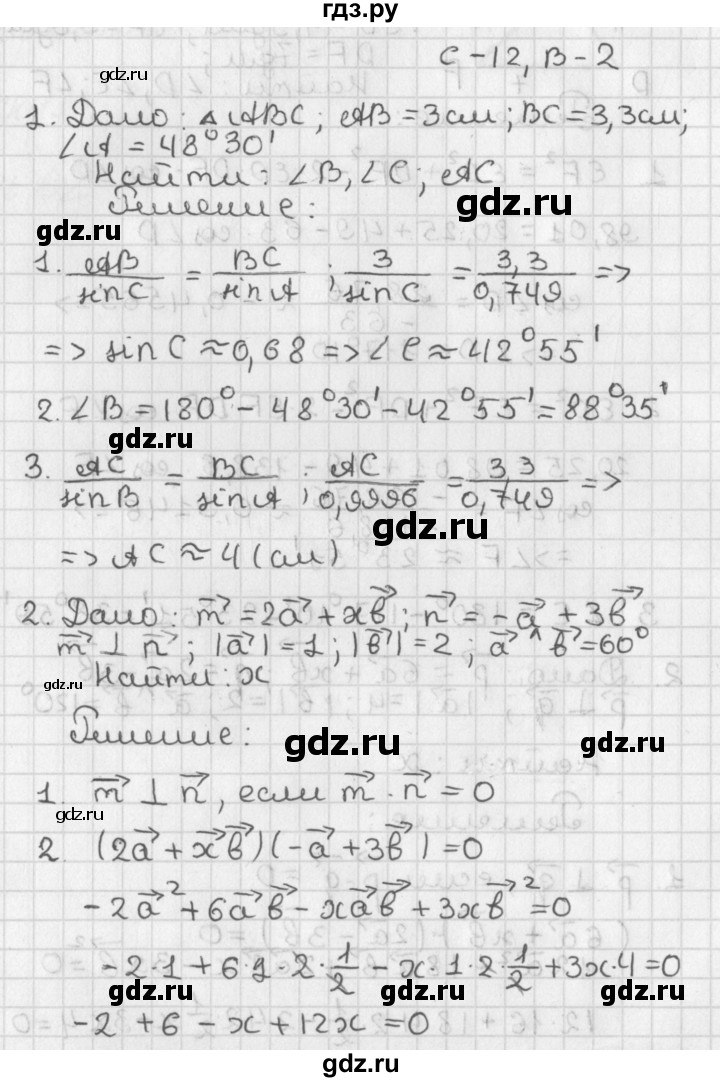 гдз.ру
gdz.ru
С-12, В-2
1. Дано: △ABC; AB = 3см; BC = 3,3см;
∠A = 48°30'
Найти: ∠B, ∠C; AC
gdz.ru
Решение:
gdz.ru
1. AB/sinC = BC/sinA ; 3/sinC = 3,3/0,749 =>
=> sinC ≈ 0,68 => ∠C ≈ 42°55'
2. ∠B = 180° - 48°30' - 42°55' = 88°35'
gdz.ru
3. AC/sinB = BC/sinA ; AC/0,9996 = 3,3/0,749 =>
gdz.ru
=> AC ≈ 4 (см)
2. Дано: m⃗ = 2a⃗ + xb⃗; n⃗ = -a⃗ + 3b⃗
m⃗ ⊥ n⃗; |a⃗| = 1; |b⃗| = 2; a⃗ ^ b⃗ = 60°
Найти: x
gdz.ru
Решение:
gdz.ru
gdz.ru
1 m⃗ ⊥ n⃗, если m⃗ · n⃗ = 0
gdz.ru
2 (2a⃗ + x⃗b⃗)(-a⃗ + 3b⃗) = 0
-2a⃗² + 6a⃗b⃗ - xa⃗b⃗ + 3xb⃗² = 0
-2·1 + 6·1·2·1/2 - x·1·2·1/2 + 3x·4 = 0
gdz.ru
gdz.ru
gdz.ru
-2 + 6 - x + 12x = 0
gdz.ru